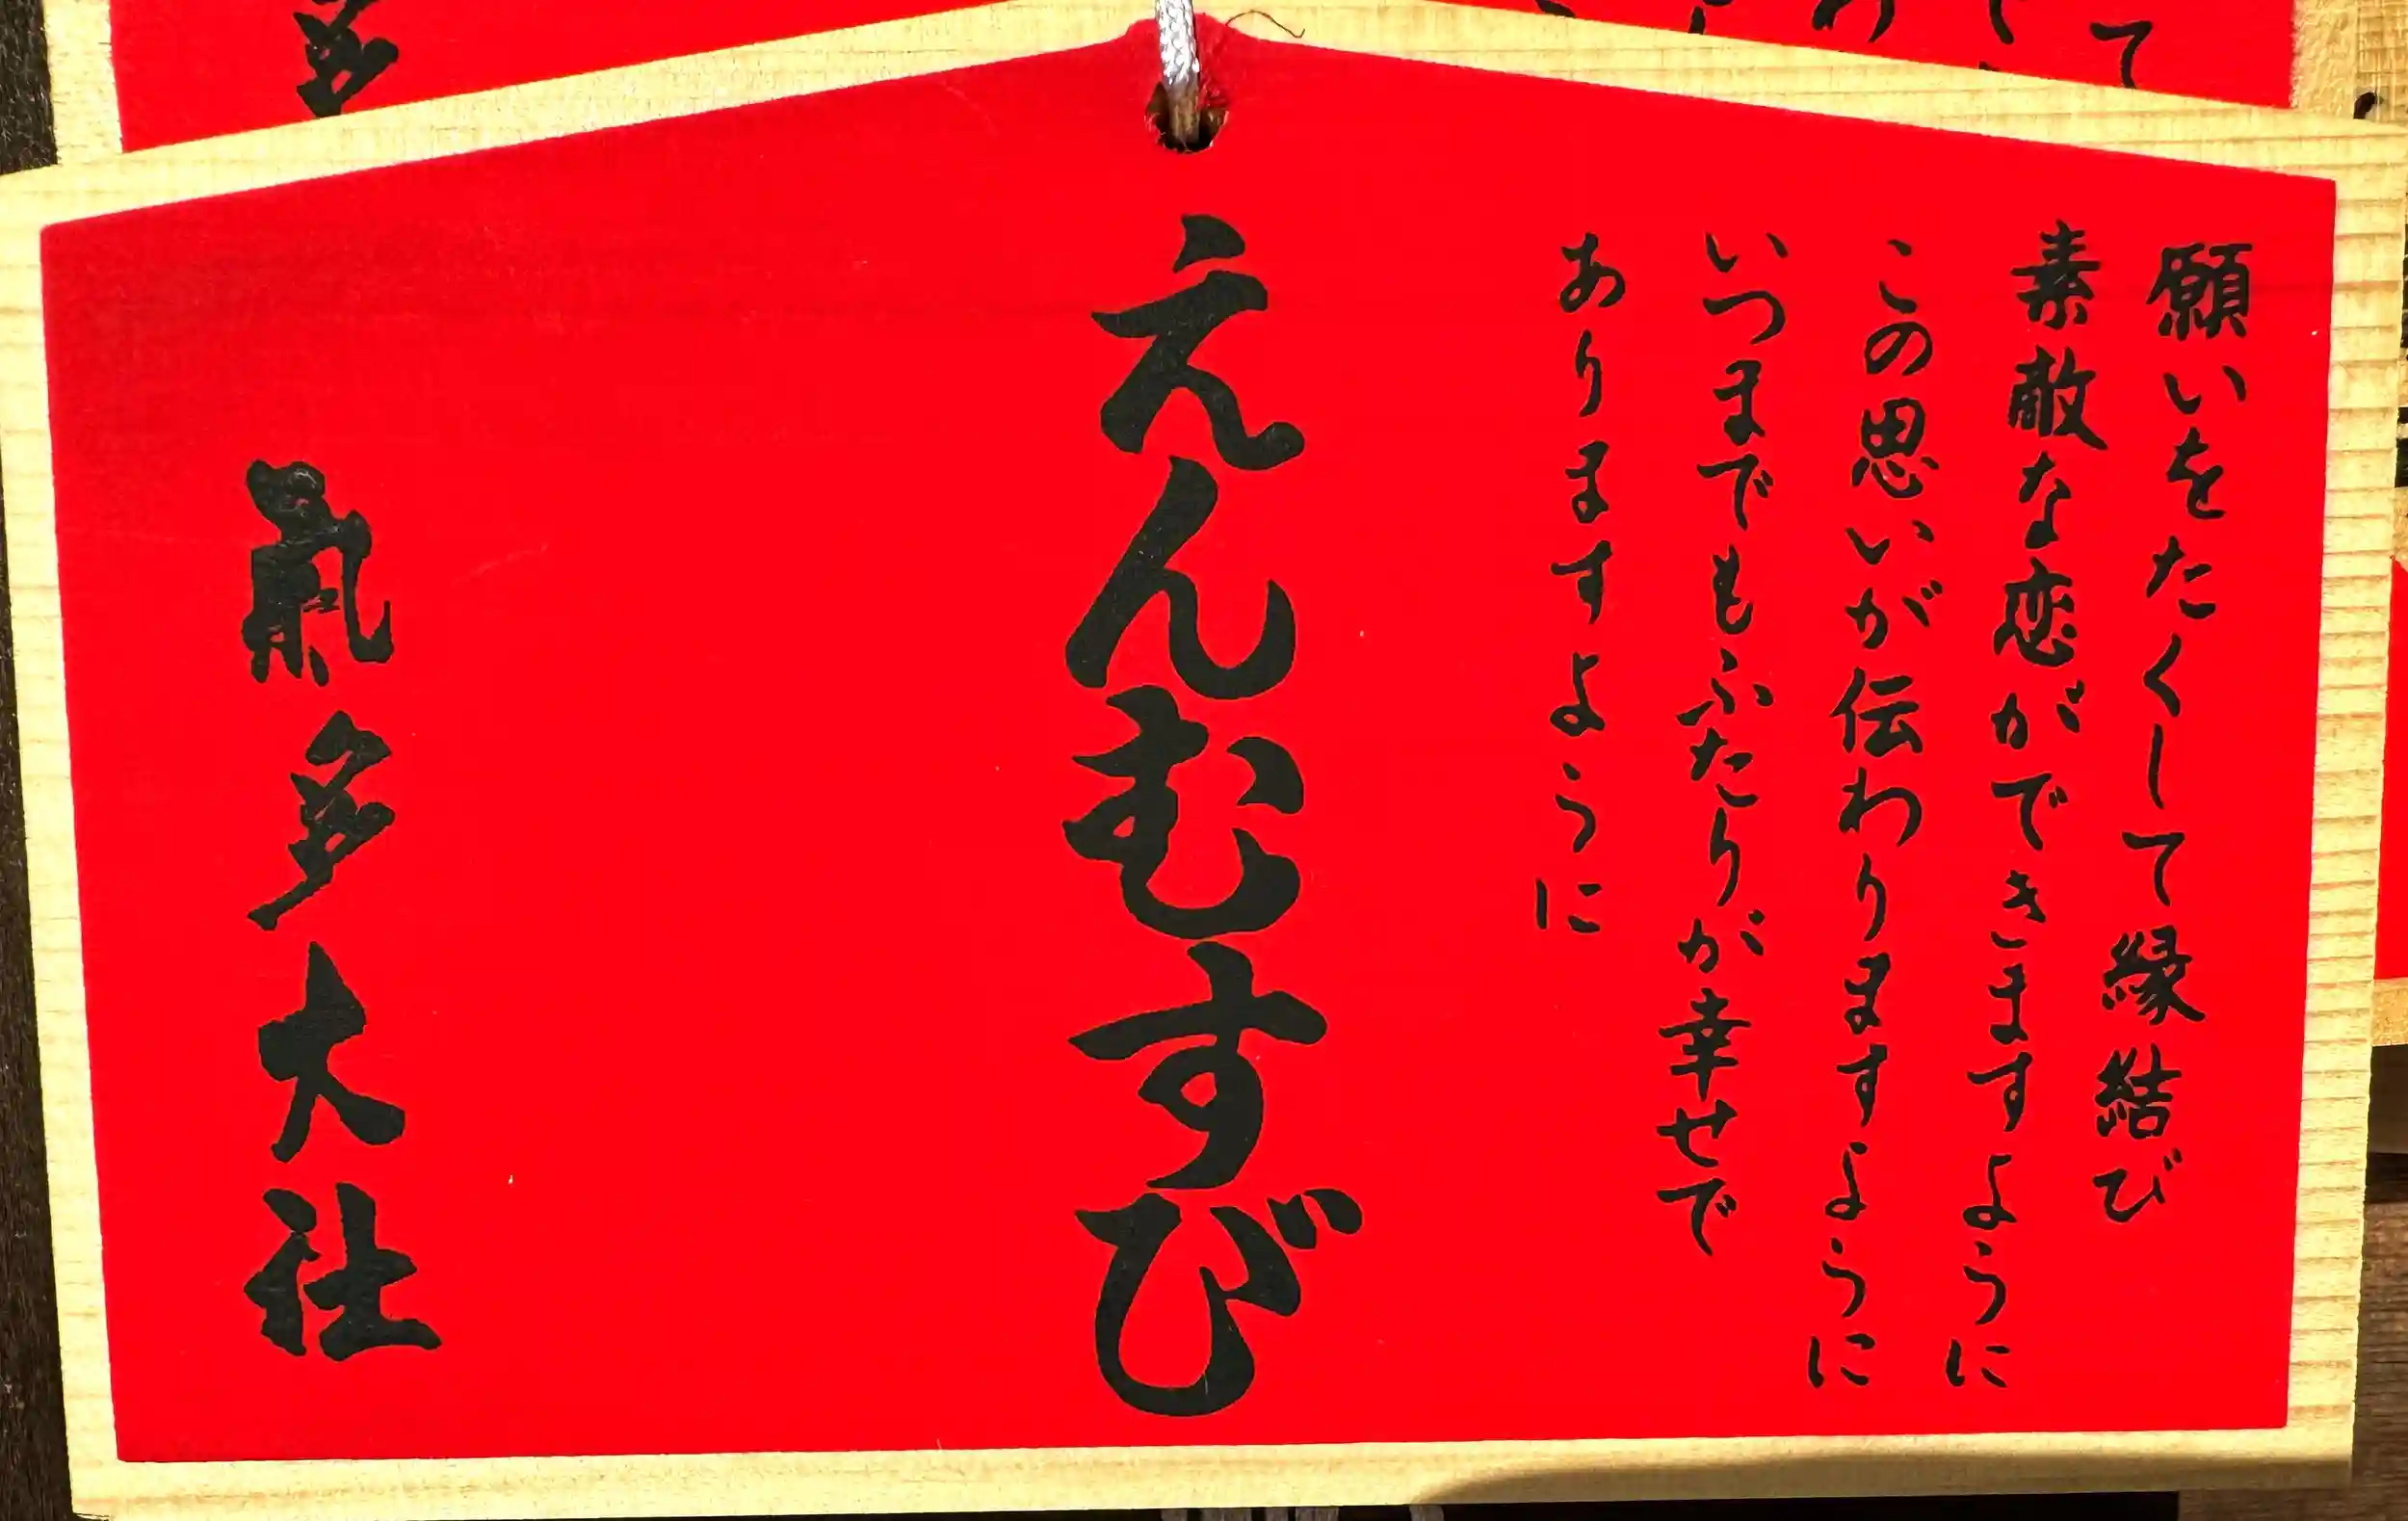 願いをたくして縁結び
素敵な恋ができますように
この思いが伝わりますように
いつまでもふたりが幸せで
ありますように
えんむすび
氣多大社